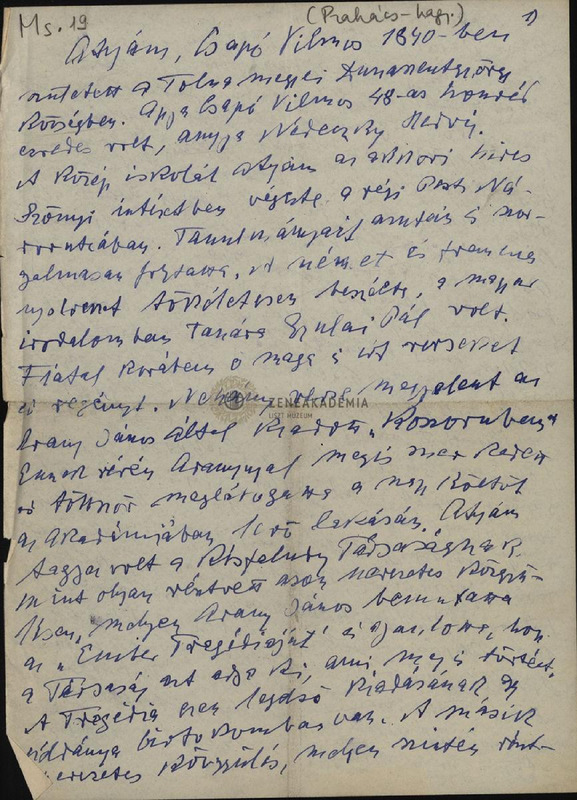 Ms. 19
(Prahács-hagy.)
1)
Atyám, Csapó Vilmos 1840-ben
született a Tolna megyei Dunaszentgyörgy
községben. Apja Csapó Vilmos 48-as honvéd
ezredes volt, anyja Nedeczky Hedvig.
A közép iskolát atyám az akkori híres
Szőnyi intézetben végezte a régi Pesti Ná-
dor utcában. Tanulmányait azután is szor-
galmasan folytatta, a német és francia
nyelvet tökéletesen beszélte, a magyar
irodalomban tanára Gyulai Pál volt.
Fiatal korában ő maga is írt verseket
és regényt. Néhány verse megjelent az
ZENEAKADÉMIA
LISZT MÚZEUM
Arany János által kiadott „Koszorúban"
Ennek révén Arannyal meg is ismerkedett
és többször meglátogatta a nagy költőt
az Akadémiában levő lakásán. Atyám
tagja volt a Kisfaludy Társaságnak
mint olyan résztvett azon nevezetes közgyű-
lésen, melyen Arany János bemutatta
az „Ember Tragédiáját" és ajánlotta, hogy
a Társaság azt adja ki, ami meg is történt.
A Tragédia ezen legelső kiadásának egy
példánya birtokomban van. A másik
nevezetes közgyűlés, melyen szintén részt-